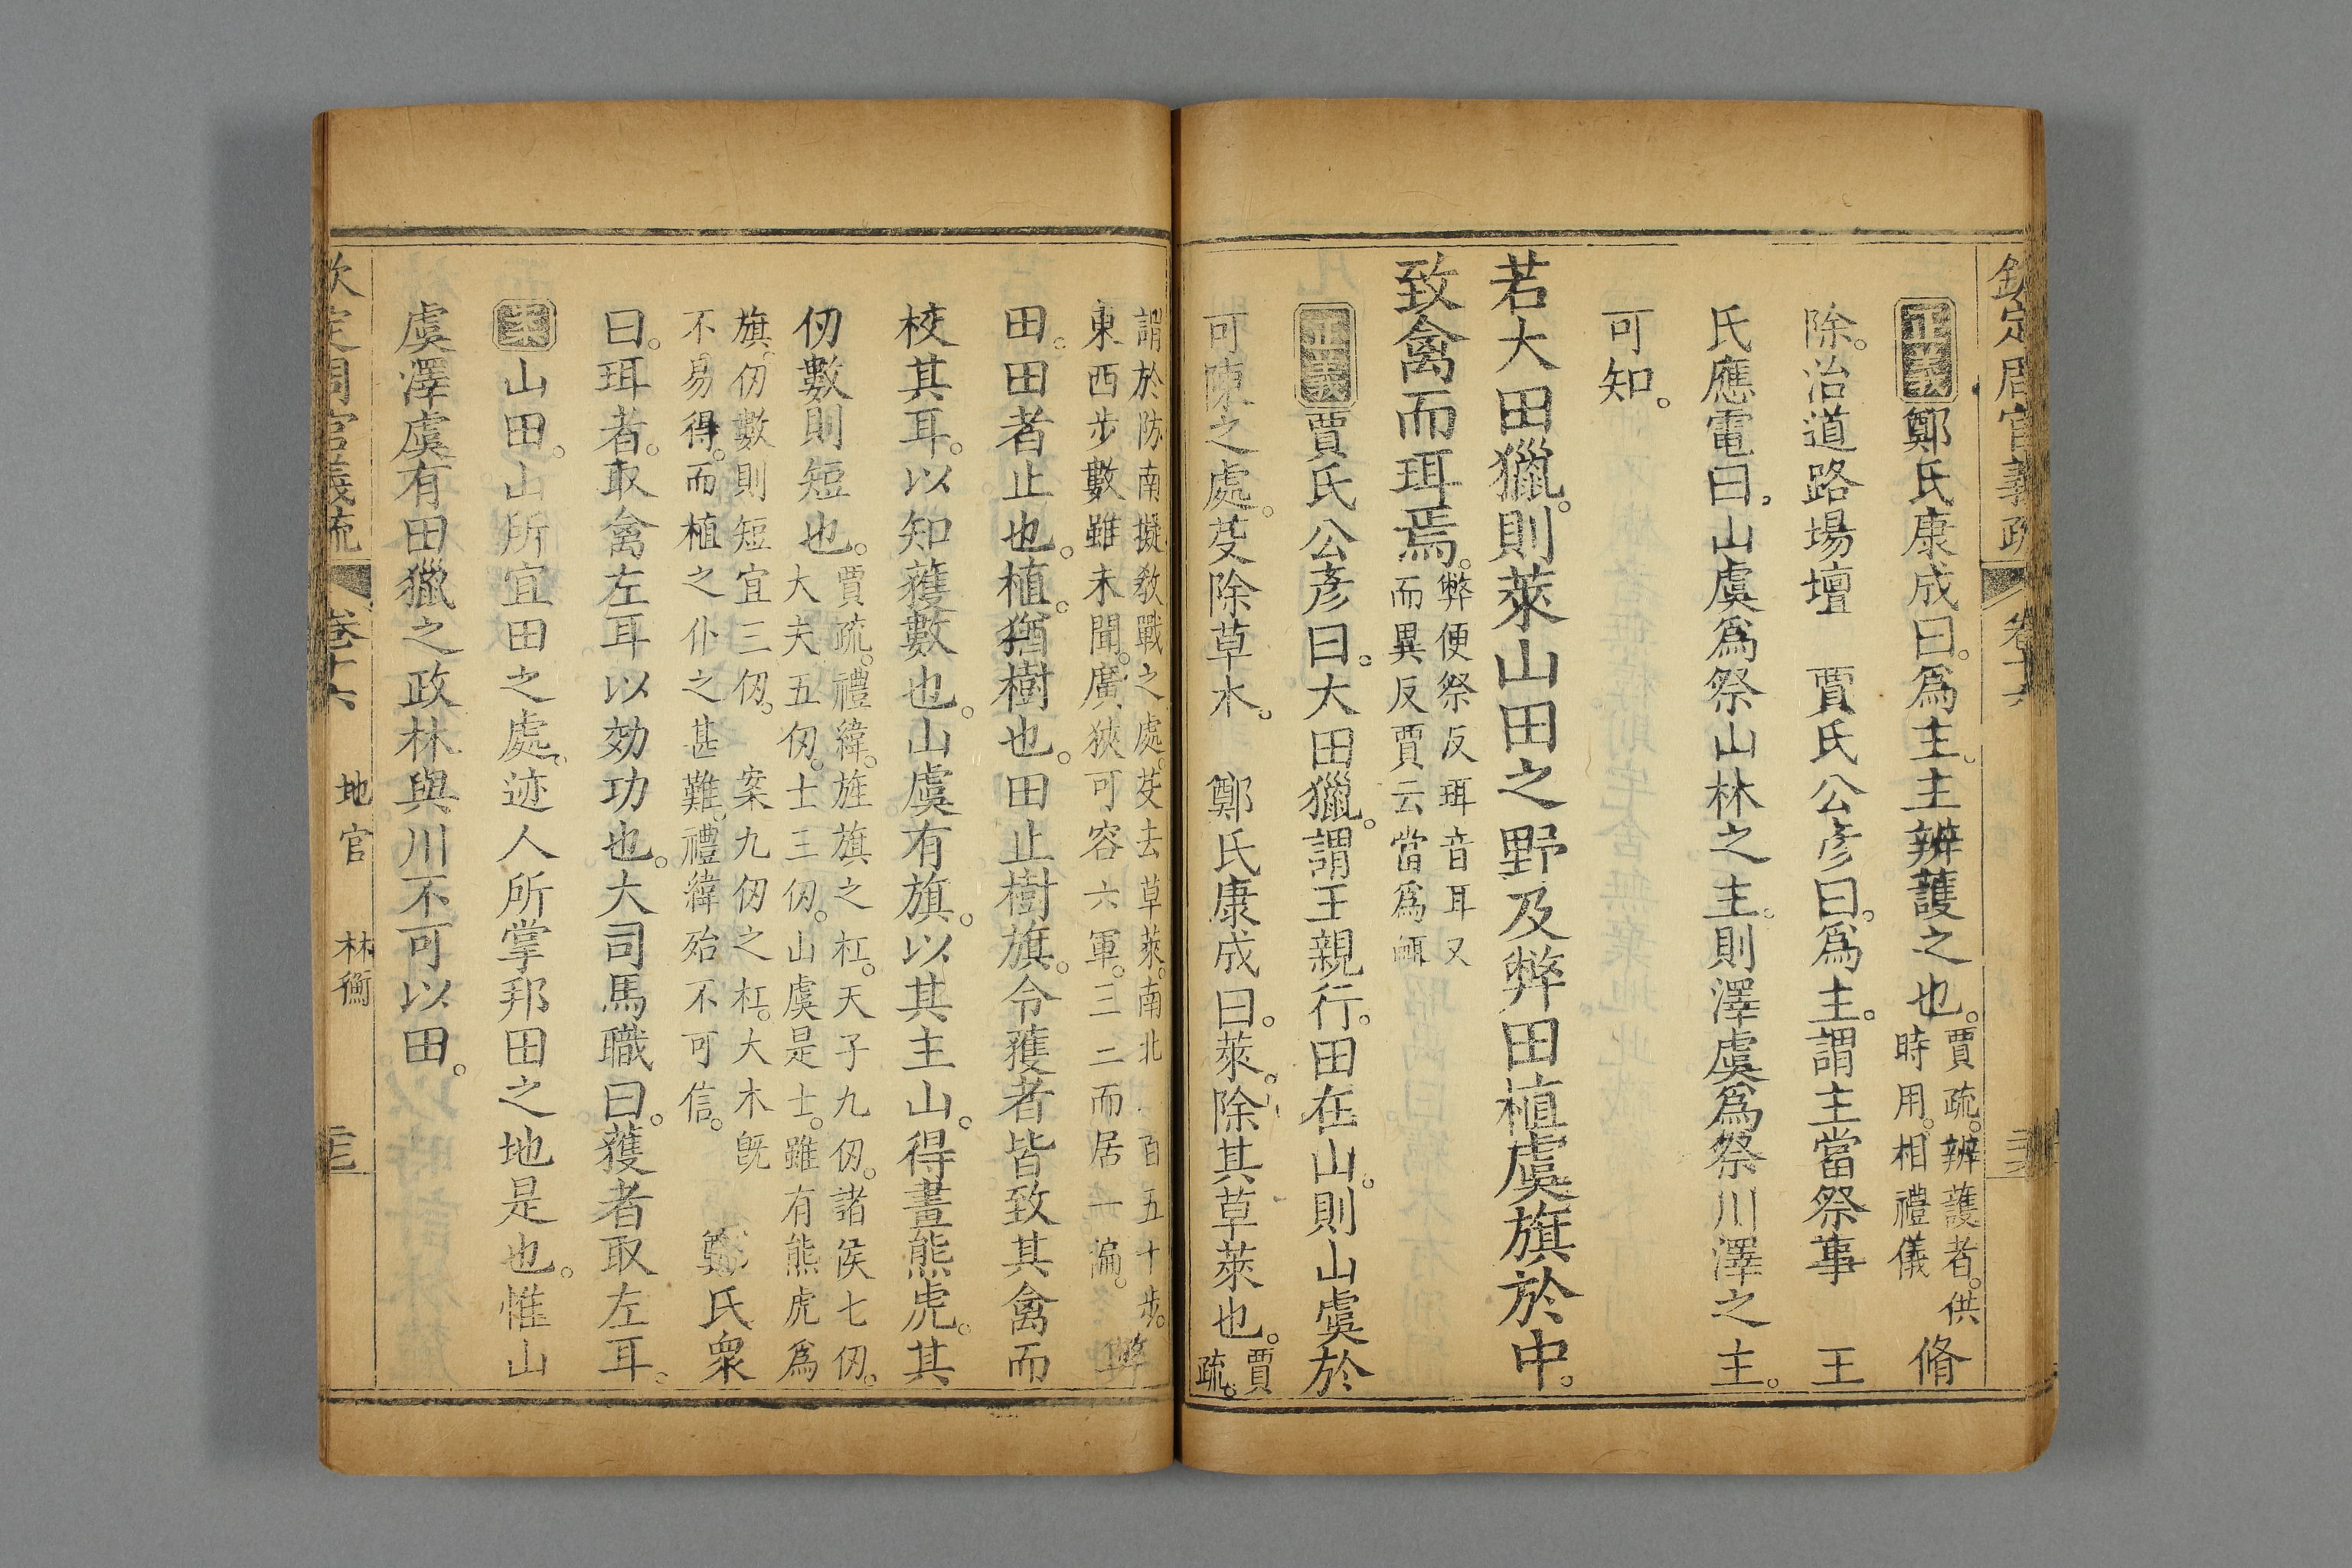 欽定周官義疏 卷十六
正義鄭氏康成曰。爲主。主辨護之也。賈疏。辨護者。供時用。相禮儀 脩
除。治道路場壇 賈氏公彥曰。爲主。謂主當祭事 王
氏應電曰。山虞爲祭山林之主。則澤虞爲祭川澤之主。
可知。
若大田獵。則萊山田之野及弊田植虞旗於中。
致禽而珥焉。弊便祭反珥音耳又而異反賈云當爲衈
正義賈氏公彥曰。大田獵。謂王親行。田在山。則山虞於
可陳之處。芟除草木。 鄭氏康成曰。萊。除其草萊也。賈疏。
謂於防南擬教戰之處。芟去草萊。南北二百五十步。東西步數雖未聞。廣狹可容六軍。三三而居一偏。 弊
田。田者止也。植。猶樹也。田止樹旗。令獲者皆致其禽而
校其耳。以知獲數也。山虞有旗。以其主山。得畫熊虎。其
仞數則短也。賈疏。禮緯。旌旗之杠。天子九仞。諸侯七仞。大夫五仞。士三仞。山虞是士。雖有熊虎爲
旗。仞數則短宜三仞。 案九仞之杠。大木旣不易得。而植之仆之甚難。禮緯殆不可信。 鄭氏衆
曰。珥者。取禽左耳以効功也。大司馬職曰。獲者取左耳。
案山田。山所宜田之處。迹人所掌邦田之地是也。惟山
虞澤虞有田獵之政林與川不可以田。
欽定周官義疏 卷十六 地官 林衡